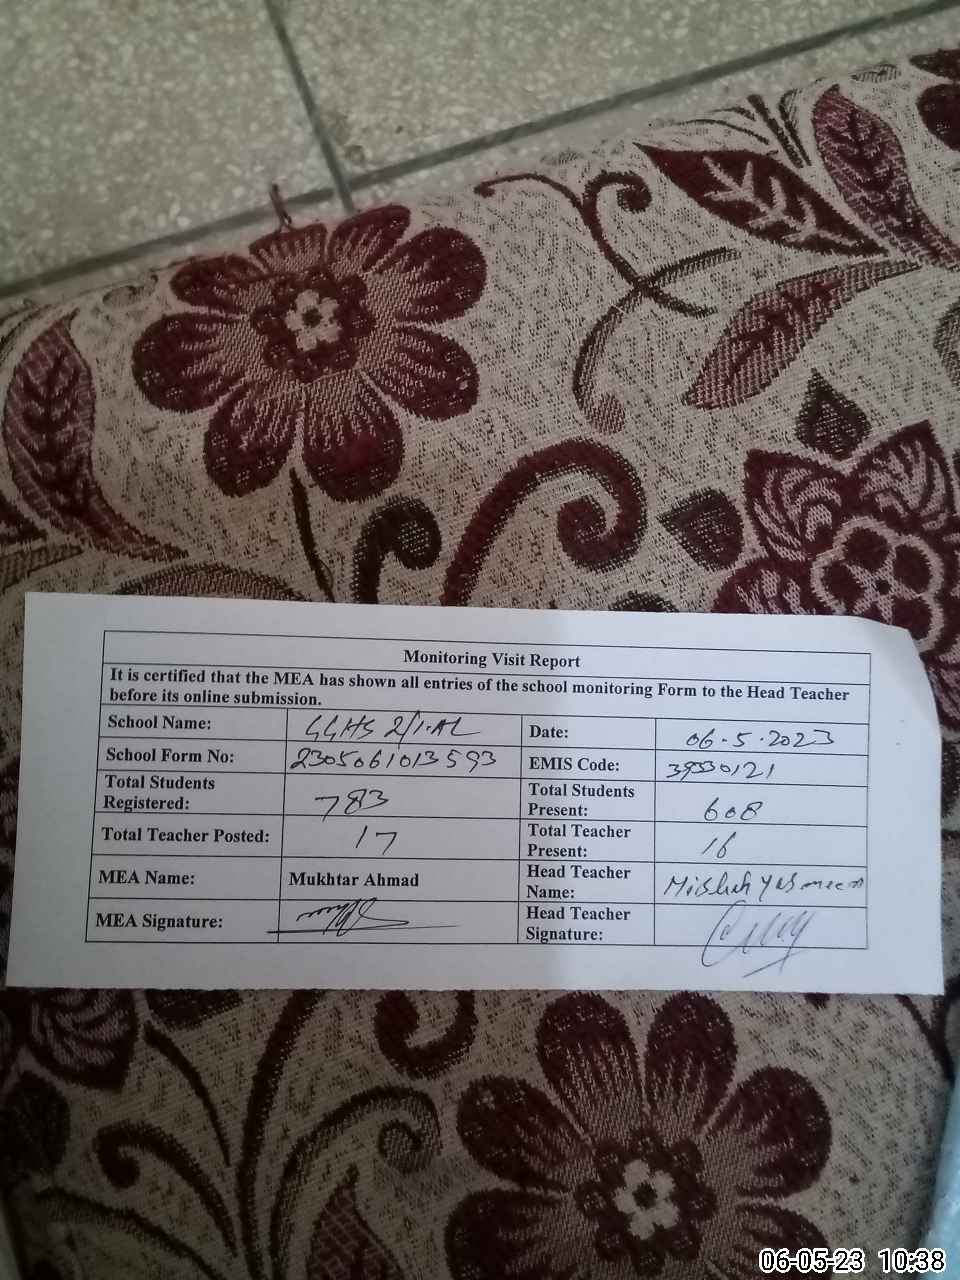 Monitoring Visit Report
It is certified that the MEA has shown all entries of the school monitoring Form to the Head Teacher
before its online submission.
School Name: GGHS 2/1-AL Date: 06-5-2023
School Form No: 2305061013593 EMIS Code: 39330121
Total Students Registered: 783 Total Students Present: 608
Total Teacher Posted: 17 Total Teacher Present: 16
MEA Name: Mukhtar Ahmad Head Teacher Name: Misbah Yasmeen
MEA Signature: Head Teacher Signature:
06-05-23 10:38